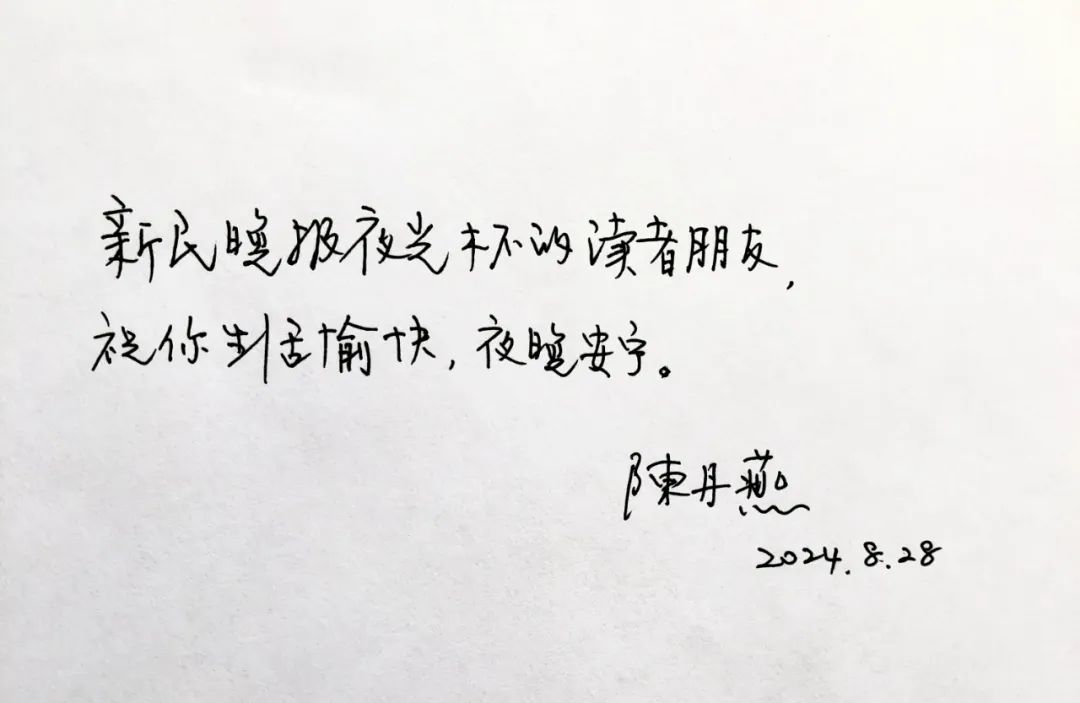 新民晚报夜光杯的读者朋友,
祝你生活愉快,夜晚安宁。
陳丹燕
2024.8.28